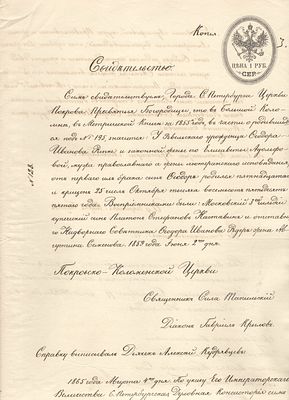 Копія
3.
ЦѢНА 1 РУБ.
СЕР.
Свидѣтельство.
Симъ свидѣтельствуемъ, Города С. Петербурга Церкви
Покрова Пресвятыя Богородицы, что въ Большой Коло-
мнѣ, въ Метрической Книгѣ за 1855 годъ, въ части о родившихъ
ся подъ № 195 значится: У Ревельскаго уроженца Ѳедора
Иванова и законной жены его Елисаветы Адольфо-
вой, мужа православнаго а жены лютеранскаго исповѣданія
отъ перваго ихъ брака сынъ Ѳедоръ родился пятнадцатаго
и крещенъ 25 числа Октября тысяча восемьсотъ пятьдесятъ
пятаго года. Воспріемниками были: Московскій 3й гильдіи
купеческій сынъ Платонъ Степановъ и отставна-
го Надворнаго Совѣтника Ѳеодора Иванова жена
Семенова 1859 года Іюня 2го дня.
Покровско-Коломенской Церкви
Священникъ Сила
Діаконъ Гавріилъ Крыловъ.
Справку выписывалъ Дьячекъ Алексѣй Кудрявцевъ
1865 года Августа 4го дня. По указу Его Императорскаго
Величества С. Петербургская Духовная Консисторія симъ